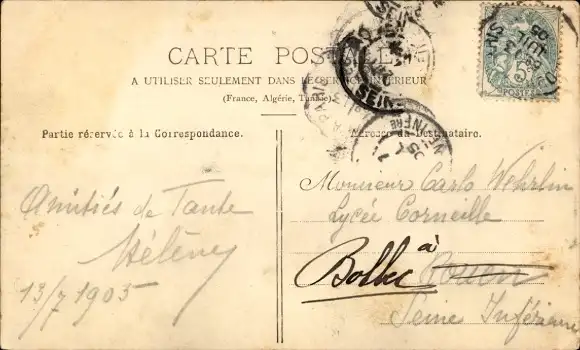 CARTE POSTALE
A UTILISER SEULEMENT DANS LE SERVICE INTÉRIEUR
(France, Algérie, Tunisie)
Partie réservée à la Correspondance.
Adresse du Destinataire.
Amitiés de Tante
Hélène
13/7 1905
Monsieur Carlo Wehrlin
Lycée Corneille
à
Bolbec Rouen
Seine Inférieure
SEINE
POSTES